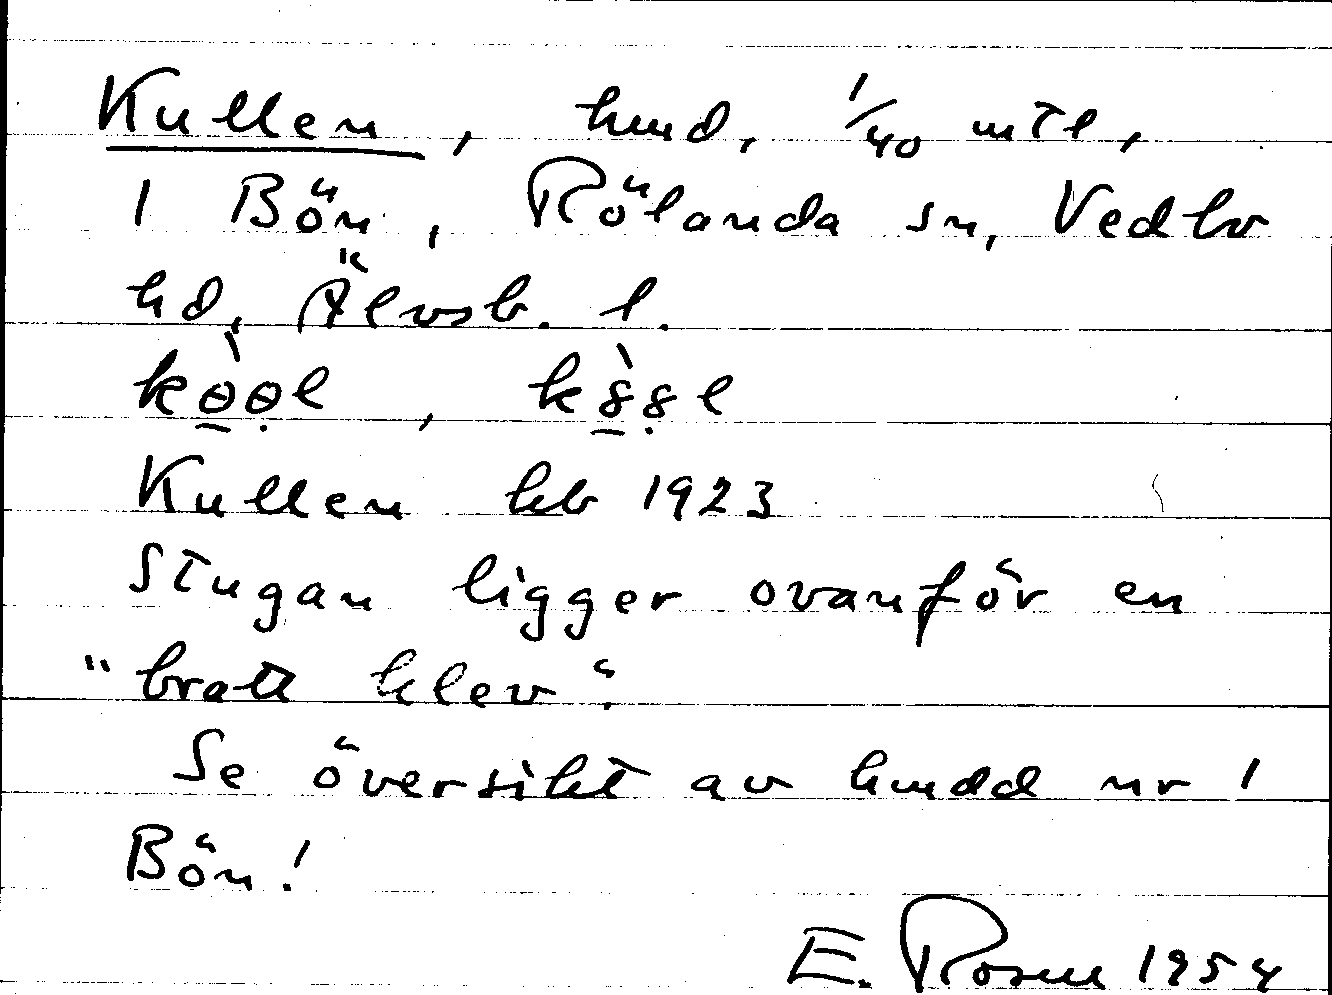 Kullen, hmd, 1/40 mtl,
1 Bön, Rölanda sn, Vedbo
hd, Älvsb. l.
Kullen kb 1923
Stugan ligger ovanför en
"bratt klev".
Se översikt av hmdd nr 1
Bön!
E. Rosell 1954